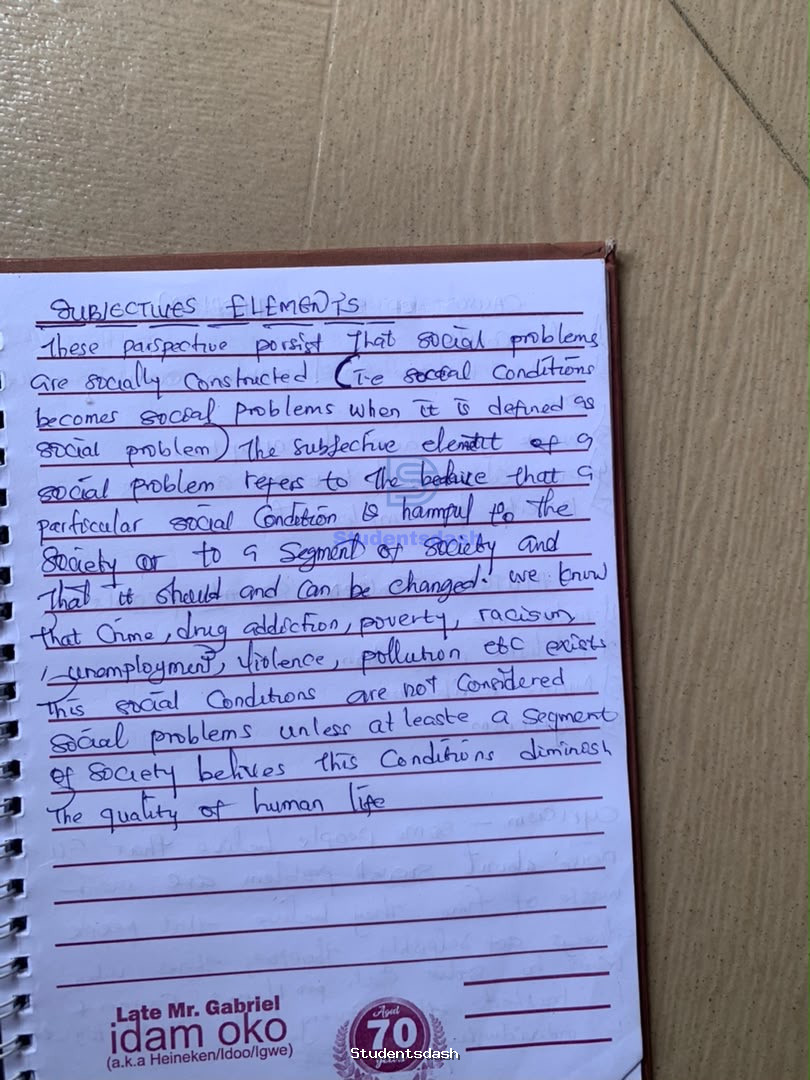 SUBJECTIVES ELEMENTS
These parspective persist that social problems
are socially constructed. (i-e social conditions
becomes social problems when it is defined as
social problem) The subjective element of a
social problem refers to the believe that a
particular social Condition is harmful to the
Society or to a Segment of Society and
That it should and can be changed. we know
that Crime, drug addiction, poverty, racism,
unemployment, violence, pollution etc exists
This social Conditions are not Considered
Social problems unless at leaste a segment
of society belives this Conditions diminish
The quality of human life
Late Mr. Gabriel
idam oko
(a.k.a Heineken/Idoo/Igwe)
Aged
70
years
Studentsdash
Studentsdash